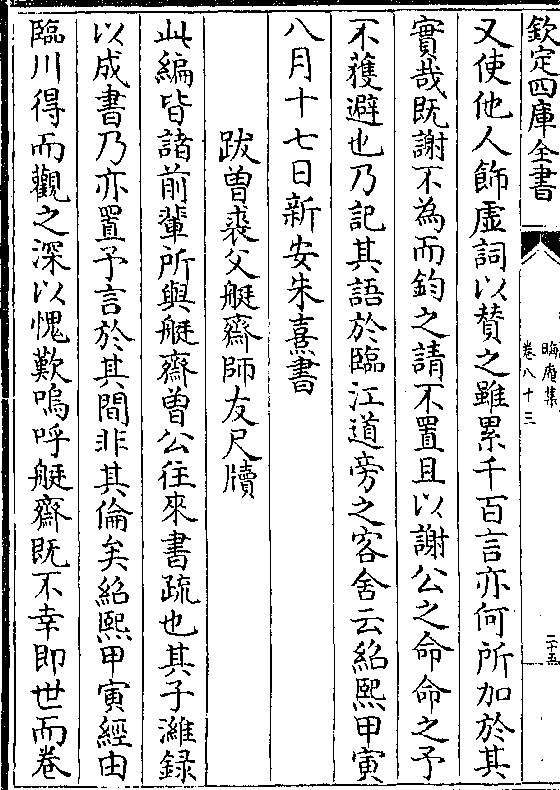 欽定四庫全書
晦庵集
卷八十三
二十五
又使他人飾虛詞以賛之雖累千百言亦何所加於其
實哉既謝不為而鈞之請不置且以謝公之命命之予
不獲避也乃記其語於臨江道旁之客舍云紹熙甲寅
八月十七日新安朱熹書
跋曾裘父艇齋師友尺牘
此編皆諸前輩所與艇齋曾公往來書疏也其子濰録
以成書乃亦置予言於其間非其倫矣紹熙甲寅經由
臨川得而觀之深以愧歎嗚呼艇齋既不幸即世而卷